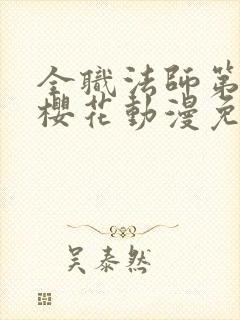 全職法師第
櫻花動漫免
吳泰然